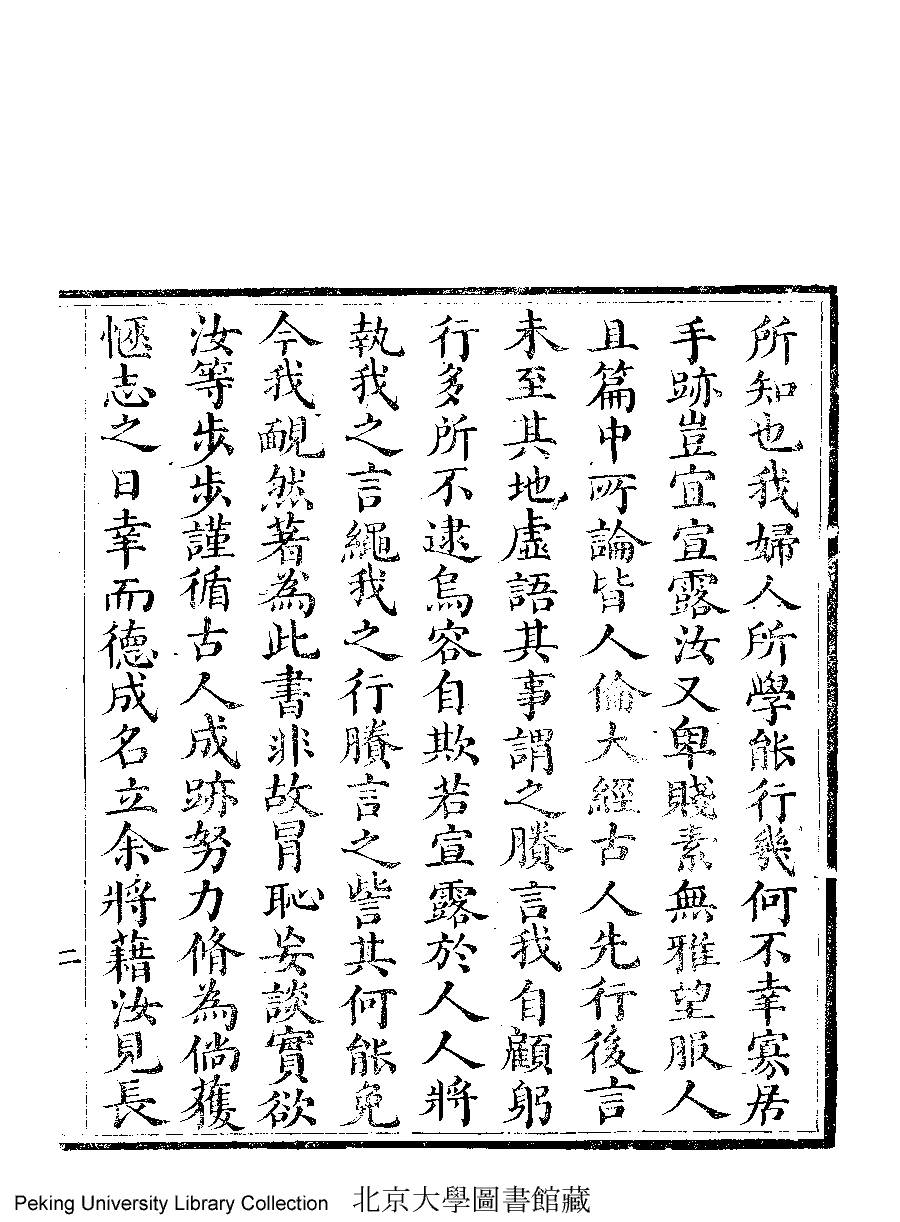 所知也我婦人所學能行幾何不幸寡居
手跡豈宜宣露汝又卑賤素無雅望服人
且篇中所論皆人倫大經古人先行後言
未至其地虛語其事謂之賸言我自顧躬
行多所不逮烏容自欺若宣露於人人將
執我之言繩我之行賸言之訾其何能免
今我靦然著為此書非故冒恥妄談實欲
汝等步步謹循古人成跡努力脩為倘獲
愜志之日幸而德成名立余將藉汝見長
二
Peking University Library Collection 北京大學圖書館藏